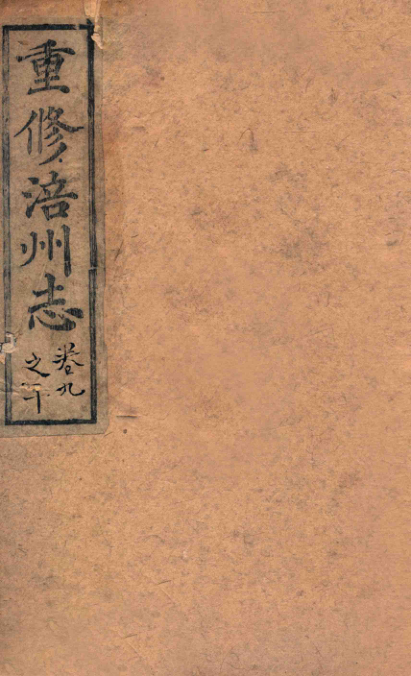 重修涪州志
卷九
之下